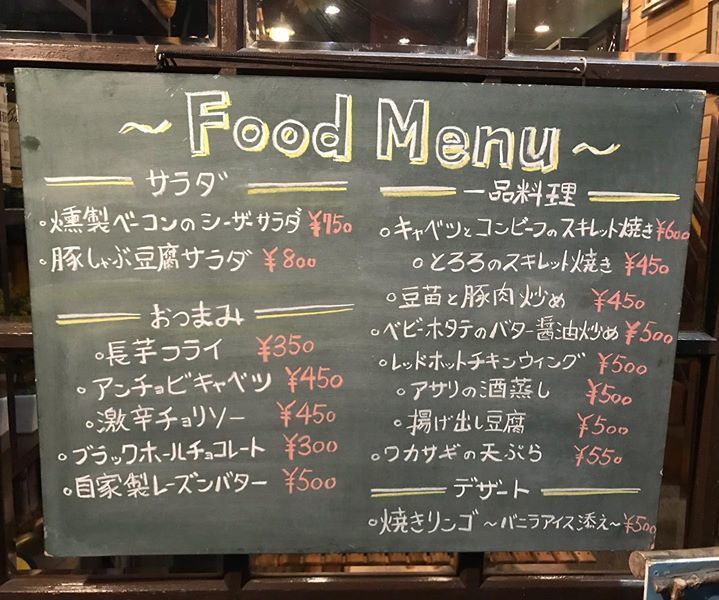 ~ Food Menu ~
サラダ
・燻製ベーコンのシーザーサラダ ¥750
・豚しゃぶ豆腐サラダ ¥800
おつまみ
・長芋フライ ¥350
・アンチョビキャベツ ¥450
・激辛チョリソー ¥450
・ブラックホールチョコレート ¥300
・自家製レーズンバター ¥500
一品料理
・キャベツとコンビーフのスキレット焼き ¥600
・とろろのスキレット焼き ¥450
・豆苗と豚肉炒め ¥450
・ベビーホタテのバター醤油炒め ¥500
・レッドホットチキンウィング ¥500
・アサリの酒蒸し ¥500
・揚げ出し豆腐 ¥500
・ワカサギの天ぷら ¥550
デザート
・焼きリンゴ～バニラアイス添え～ ¥500